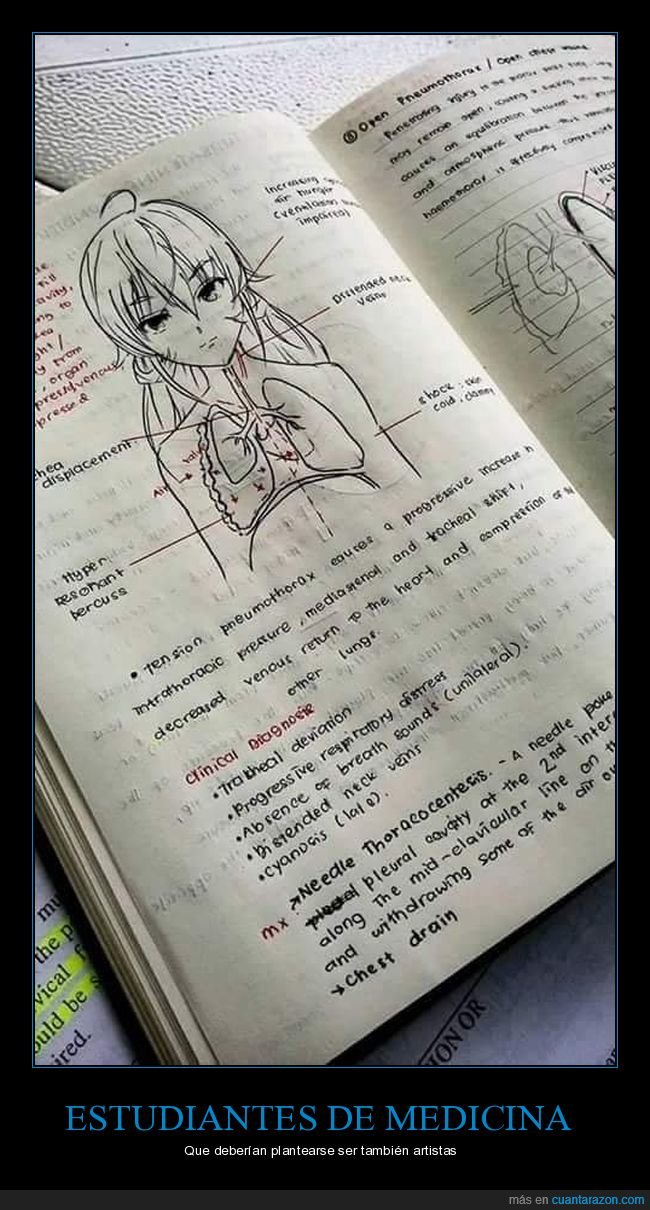 ⑧ Open Pneumothorax / Open chest wound
Penetrating injury to the
may remain open, causing a sucking
causes an equilibration between the
and atmospheric pressure that
haemothorax is effectively compressed
Increasing
air hunger
(ventilation
impaired)
Distended neck
veins
shock : skin
cold, clammy
fill
cavity,
ng to
from
, organ
displacement
Air
valve
Hyper
Resonant
percuss
• Tension pneumothorax causes a progressive increase in
intrathoracic pressure, mediastenal and tracheal shift,
decreased venous return to the heart and compression of
other lungs.
Clinical Diagnosis
• Tracheal deviation
• Progressive respiratory distress
• Absence of breath sounds (unilateral).
• Distended neck veins
• cyanosis (late).
mx :
→ Needle Thoracocentesis. - A needle
pleural cavity at the 2nd inter
along the mid-clavicular line on
and withdrawing some of the air
→ Chest drain
the p
vical
ould be s
ired.
ION OR
ESTUDIANTES DE MEDICINA
Que deberían plantearse ser también artistas
más en cuantarazon.com